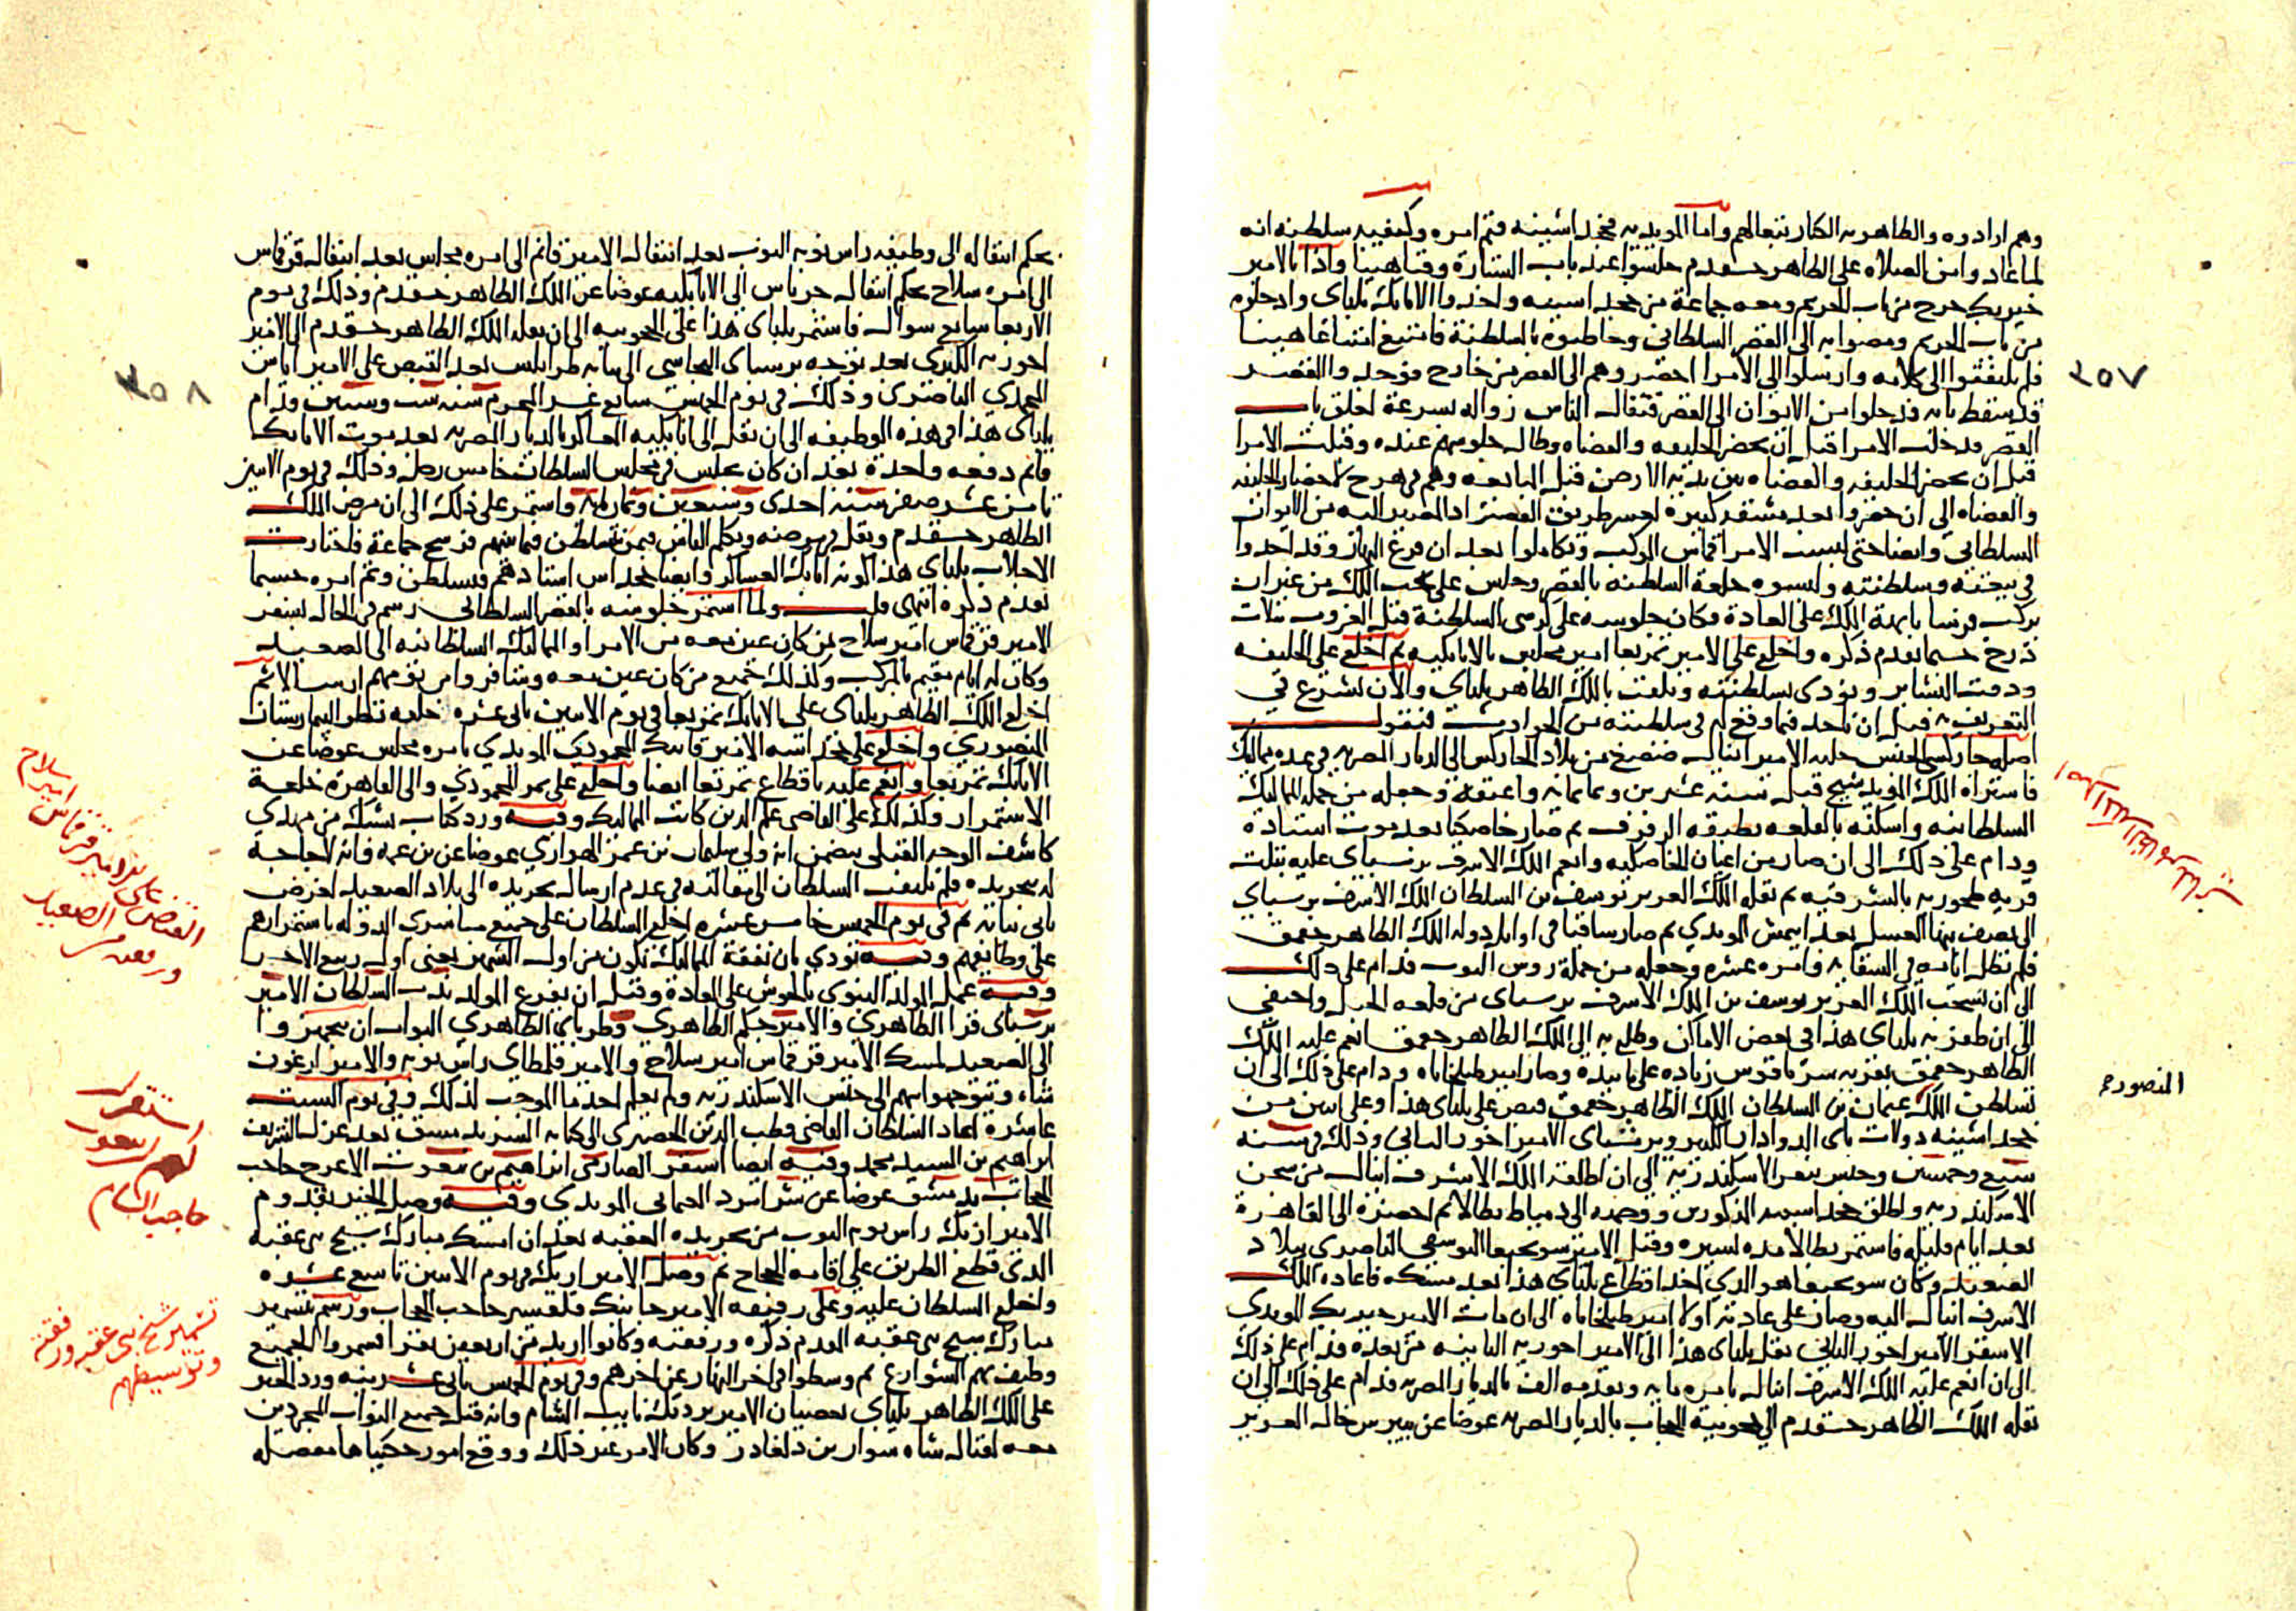 وهم ارادوه والظاهريه الكبار تبعا لهم واما المويديه فخجداشينه فتم امره وكيفيه سلطنه انه
لما عاد وامن الصلاه على الظاهر خشقدم جلسوا عند باب الستارة وقتا هينا واذا بالامير
خيربك خرج من باب الحريم ومعه جماعة من خجداشينه واخذوا الاتابك يلباى وادخلوه
من باب الحريم ومضوا به الى القصر السلطانى وخاطبوه بالسلطنة فامتنع امتناعا هينا
فلم يلتفتوا الى كلامه وارسلوا الى الامرا احضروهم الى القصر من خارج فوجدوا القصر
قد سقط بابه فدخلوا من الايوان الى القصر فتفال الناس زواله بسرعة لغلق باب
القصر فدخلت الامرا قبل ان يحضر الخليفه والقضاه وطال جلوسهم عنده وقبلت الامرا
قبل ان يحضر الخليفه والقضاه بين يديه الارض قبل المبايعه وهم فى هرج لاحضار الخليفه
والقضاه الى ان حضروا بعد مشقه كبيرة لعسر طريق القصر اذ المصير اليه من الايوان
السلطانى وايضا حتى لبست الامرا قماش الموكب وتكاملوا بعد ان فرغ النهار وقد اخذوا
فى بيعته وسلطنته والبسوه خلعة السلطنه بالقصر وجلس على تخت الملك من غير ان
يركب فرسا بابهة الملك على العادة وكان جلوسه على كرسى السلطنة قبل الغروب بثلاث
درج حسبما تقدم ذكره واخلع على الامير تمربغا امير مجلس بالاتابكيه ثم اخلع على الخليفه
ودقت البشاير ونودى بسلطنته وتلقب بالملك الظاهر يلباى والان نشرع فى
التعريف به قبل ان ناخذ فيما وقع له فى سلطنته من الحوادث فنقول
اصله جاركسى الجنس جلبه الامير اينال ضضع من بلاد الجاركس الى الديار المصريه فى عده مماليك
فاشتراه الملك المويد شيخ قبل سنه عشرين وثمانمايه واعتقه وجعله من جمله المماليك
السلطانيه واسكنه بالقلعه بطبقه الرفرف ثم صار خاصكيا بعد موت استاده
ودام على ذلك الى ان صار من اعيان الخاصكيه وانعم الملك الاشرف برسباى عليه بثلث
قريه طحوريه بالشرقيه ثم نقله الملك العزيز يوسف بن السلطان الملك الاشرف برسباى
الى نصف بنها العسل بعد ايتمش المويدي ثم صار ساقيا فى اوايل دوله الملك الظاهر جقمق
فلم تطل ايامه فى السقايه وامره عشره وجعله من جملة روس النوب فدام على ذلك
الى ان تسحب الملك العزيز يوسف بن الملك الاشرف برسباى من قلعه الجبل واختفى
الى ان ظفر به يلباى هذا فى بعض الاماكن وطلع به الى الملك الظاهر جقمق انعم عليه الملك
الظاهر جقمق بقريه سرياقوس زياده على ما بيده وصار امير طبلخاناه ودام على ذلك الى ان
تسلطن الملك عثمان بن السلطان الملك الظاهر جقمق قبض على يلباى هذا وعلى اثنين من
خجداشينه دولات باى الدوادار الكبير ويرشباى الامير اخور الثانى وذلك فى سنه
سبع وخمسين وحبس بثغر الاسكندريه الى ان اطلقه الملك الاشرف اينال من سجن
الاسكندريه واطلق خجداشيه المذكورين ووجهه الى دمياط بطالا ثم احضره الى القاهرة
بعد ايام قليله فاستمر بطالا مده يسيره وقتل الامير سونجبغا اليونسى الناصرى ببلاد
الصعيد وكان سونجبغا هو الذي اخذ اقطاع يلباى هذا بعد مسكه فاعاده الملك
الاشرف اينال اليه وصار على عادته اولا امير طبلخاناه الى ان مات الامير خيربك المويدى
الاشقر الامير اخور الثانى نقل يلباى هذا الى الامير اخوريه الثانيه من بعده فدام على ذلك
الى ان انعم عليه الملك الاشرف اينال بامره مايه وتقدمه الف بالديار المصريه فدام على ذلك الى ان
نقله الملك الظاهر خشقدم الى حجوبية الحجاب بالديار المصريه عوضا عن بيبرس خال العزيز
٢٥٧
المنصوره
بحكم انتقاله الى وظيفه راس نوبه النوب بعد انتقال الامير قانم الى امره مجلس بعد انتقال قرقماس
الى امره سلاح بحكم انتقال جرباش الى الاتابكيه عوضا عن الملك الظاهر خشقدم وذلك فى يوم
الاربعا سابع شوال فاستمر يلباى هذا على الحجوبيه الى ان نقله الملك الظاهر خشقدم الى الامير
اخوريه الكبرى بعد توجه برسباى البجاسى الى نيابه طرابلس بعد القبض على الامير اياس
المحمدي الناصرى وذلك فى يوم الخميس سابع عشر المحرم سنه ست وستين ودام
يلباى هذا فى هذه الوظيفه الى ان نقل الى اتابكيه العساكر بالديار المصريه بعد موت الاتابك
قانم دفعه واحدة بعد ان كان يجلس فى مجلس السلطان خامس رجل وذلك فى يوم الاثنين
ثامن عشر صفر سنه احدى وسبعين وثمانمايه واستمر على ذلك الى ان مرض الملك
الظاهر خشقدم وثقل فى مرضه وتكلم الناس فيمن يتسلطن فيما بينهم فرشح جماعة فاختار
الاجلاب يلباى هذا لكونه اتابك العساكر وايضا خجداش استادهم فتسلطن وتم امره حسبما
تقدم ذكره انتهى قلت ولما استمر جلوسه بالقصر السلطانى رسم فى الحال بسفر
الامير قرقماس امير سلاح بمن كان عين معه من الامرا والمماليك السلطانيه الى الصعيد
وكان له ايام مقيم بالمركب وكذلك جميع من كان عين معه وسافروا من يومهم ارسالا ثم
اخلع الملك الظاهر يلباى على الاتابك تمربغا فى يوم الاثنين ثانى عشره خلعه نظر البيمارستان
المنصوري واخلع على خجداشه الامير قانبك المحمودى المويدي بامره مجلس عوضا عن
الاتابك تمربغا وانعم عليه باقطاع تمربغا ايضا واخلع على تمر المحمودي والى القاهرة خلعة
الاستمرار وكذلك على القاضى علم الدين كاتب المماليك وفيه ورد كتاب يشبك من مهدي
كاشف الوجه القبلى يتضمن انه ولى سليمان بن عمر الهواري عوضا عن بن عمه وانه لا حاجة
له بتجريده فلم يلتفت السلطان الى مقالته فى عدم ارسال تجريده الى بلاد الصعيد لغرض
ياتى بيانه ثم فى يوم الخميس خامس عشره اخلع السلطان على جميع مباشرى الدوله باستمرارهم
على وظايفهم وفيه نودي بان نفقة المماليك تكون من اول الشهر يعنى اول ربيع الاخر
وفيه عمل المولد النبوي بالحوش على العادة وقبل ان يفرغ المولد ندب السلطان الامير
برسباى قرا الظاهري والامير جكم الظاهرى وطرباى الظاهري البواب ان يتجهزوا
الى الصعيد لمسك الامير قرقماس امير سلاح والامير قلمطاى راس نوبه والامير ارغون
شاه ويتوجهوا بهم الى حبس الاسكندريه ولم يعلم احد ما الموجب لذلك وفى يوم السبت
عاشره اعاد السلطان القاضى قطب الدين الخضيرى الى كتابه السر بدمشق بعد عزل الشريف
ابراهيم بن السيد محمد وفيه ايضا استقر الصارمى ابراهيم بن بيغوت الاعرج حاجب
الحجاب بدمشق عوضا عن شرامرد العثمانى المويدى وفيه وصل الخبر بقدوم
الامير ازبك راس نوبة النوب من تجريده العقبه بعد ان امسك مبارك شيخ بنى عقبه
الذى قطع الطريق على اقامه الحجاج ثم وصل الامير ازبك فى يوم الاثنين تاسع عشره
واخلع السلطان عليه وعلى رفيقه الامير جانبك قلقسيز حاجب الحجاب ورسم بتسمير
مبارك شيخ بنى عقبه المقدم ذكره ورفقته وكانوا ازيد من اربعين نفرا فسمروا الجميع
وطيف بهم الشوارع ثم وسطوا فى اخر النهار عن اخرهم وفى يوم الخميس ثانى عشرينه ورد الخبر
على الملك الظاهر يلباى بعصيان الامير بردبك نايب الشام وانه قتل جميع النواب المجردين
معه لقتال شاه سوار بن دلغادر وكان الامر غير ذلك ووقع امور حكيناها مفصله
٢٥٨
القبض على الامير قرقماس امير سلاح
ورفقته من الصعيد
استقرار
ابن بيغوت
حاجب الشام
تسمير شيخ بنى عقبه ورفقته
وتوسيطهم